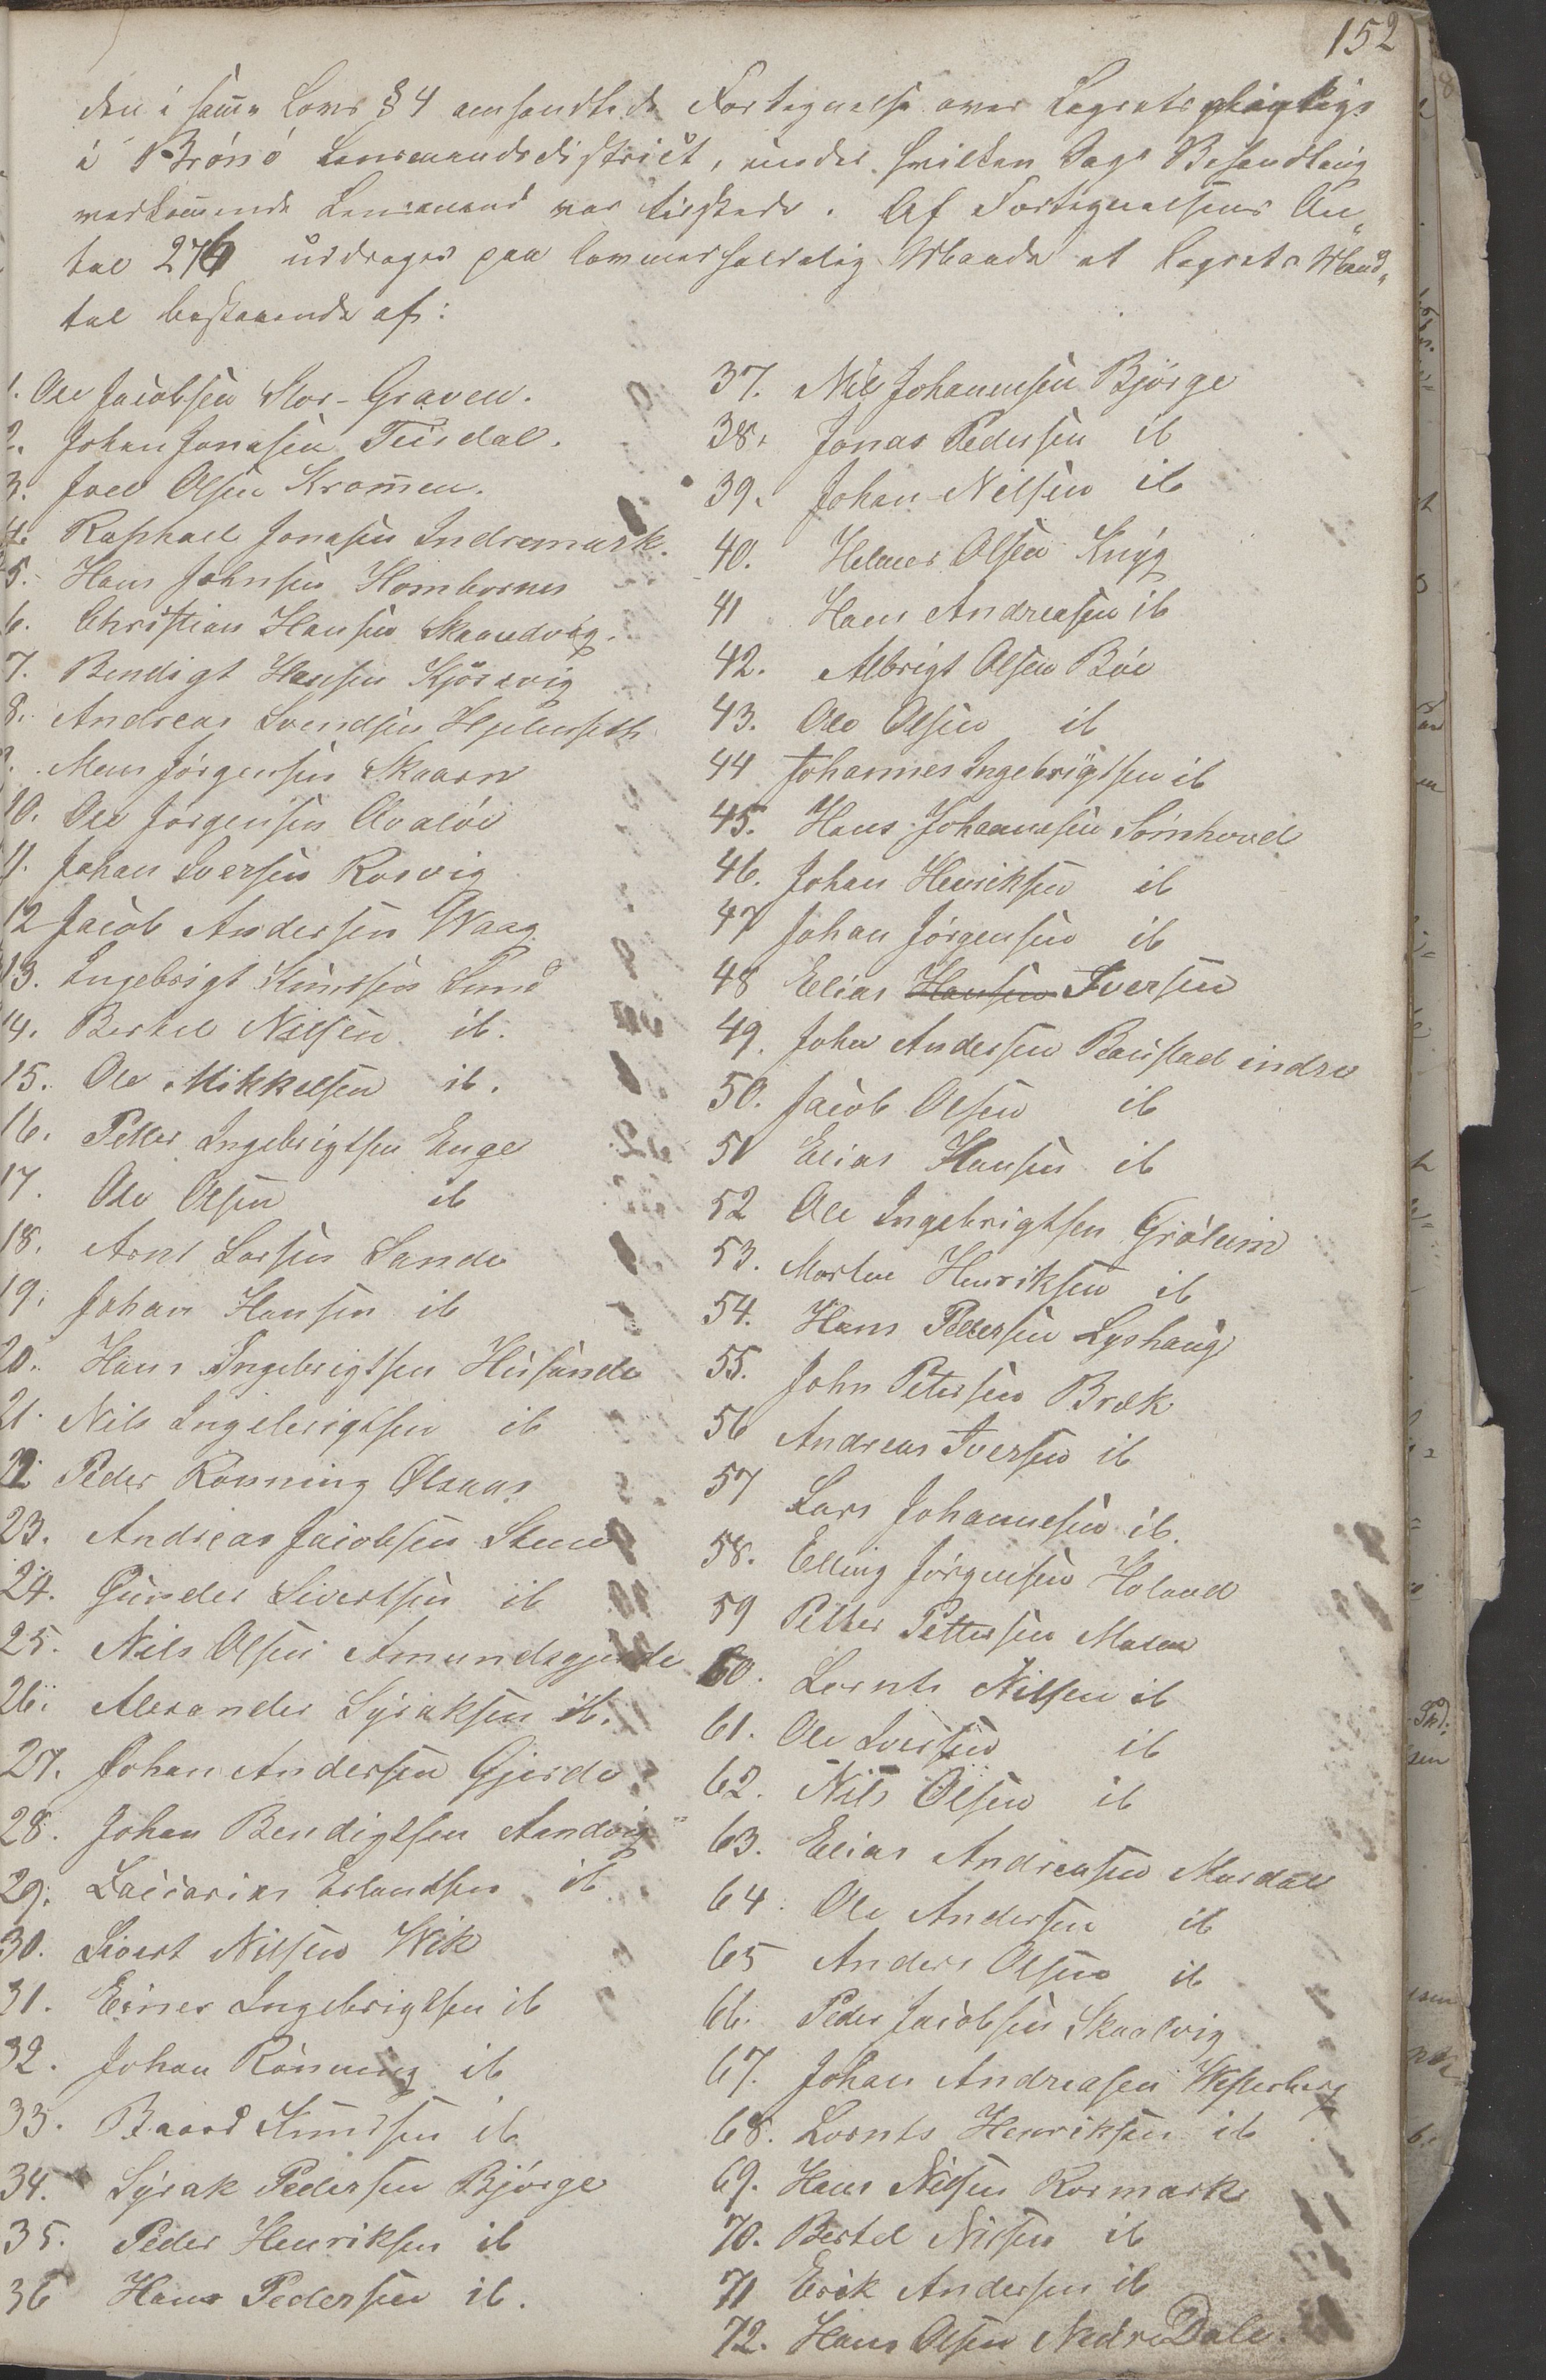 152
den i samme Lovs § 4 omhandlede Fortegnelse over Lagretspligtige
i Brönö Lensmandsdistrict, under hvilken Sags Behandling
vedkommende Lensmand var tilstede. Af Fortegnelsens An„
tal 276 uddroges paa lovmedholdelig Maade et Lagrets Mand„
tal bestaaende af:
1. Ole Jacobsen Stor-Graven.
2. Johan Jonasen Tiisdal.
3. Joel Olsen Krommen.
4. Raphael Jonasen Indremark.
5. Hans Johnsen Hombornes
6. Christian Hansen Skandvig.
7. Bendigt Hansen Kjörsvig
8. Andreas Svendsen Hjelmseth
9. Mons Jörgensen Skaarn
10. Ole Jörgensen Qvalöe
11. Johan Iversen Rosvig
12 Jacob Andersen Waag
13. Ingebrigt Knudsen Sund
14. Bertel Nilsen ib.
15. Ole Mikkelsen ib.
16. Petter Ingebrigtsen Enge
17. Ole Olsen ib
18. Arnt Larsen Sande
19. Johan Hansen ib
20. Hans Ingebrigtsen Husande
21. Nils Ingebrigtsen ib
22 Peder Rönning Olsaas
23. Andreas Jacobsen Steen
24. Gunder Sivertsen ib
25. Nils Olsen Amundsgjerde
26. Alexander Syraksen ib.
27. Johan Andersen Gjerde
28. Johan Bendigtsen Sandvig
29. Zaccarias Erlandsen ib
30. Sivert Nilsen Wik
31. Einer Ingebrigtsen ib
32. Johan Rönning ib
33. Baard Knudsen ib
34. Syrak Pedersen Bjørge
35. Peder Henriksen ib
36 Hans Pedersen ib.
37. Nils Johannesen Bjørge
38. Jonas Pedersen ib
39. Johan Nilsen ib
40. Helmer Olsen Knyg
41 Hans Andreasen ib
42. Albrigt Olsen Böe
43. Ole Olsen ib
44 Johannes Ingebrigtsen ib
45. Hans Johannesen Sömhoved
46. Johan Henriksen ib
47 Johan Jörgensen ib
48 Elias Hansen Iversen
49. Johan Andersen Baustad indre
50. Jacob Olsen ib
51 Elias Hansen ib
52 Ole Ingebrigtsen Gröleim
53. Morten Henriksen ib
54. Hans Pettersen Lyshaug
55. John Petersen Bræk
56 Andreas Iversen ib
57 Lars Johannesen ib.
58. Elling Jörgensen Holand
59 Petter Pettersen Mosen
60. Lornts Nilsen ib
61. Ole Iversen ib
62. Nils Olsen ib
63. Elias Andreasen Mardal
64. Ole Andersen ib
65 Anders Olsen ib
66. Peder Jacobsen Skaalvig
67. Johan Andreasen Westerberg
68. Lornts Henriksen ib
69. Hans Nilsen Rormark
70. Bertel Nilsen ib
71 Erik Andersen ib
72. Hans Olsen Nedre Dale.